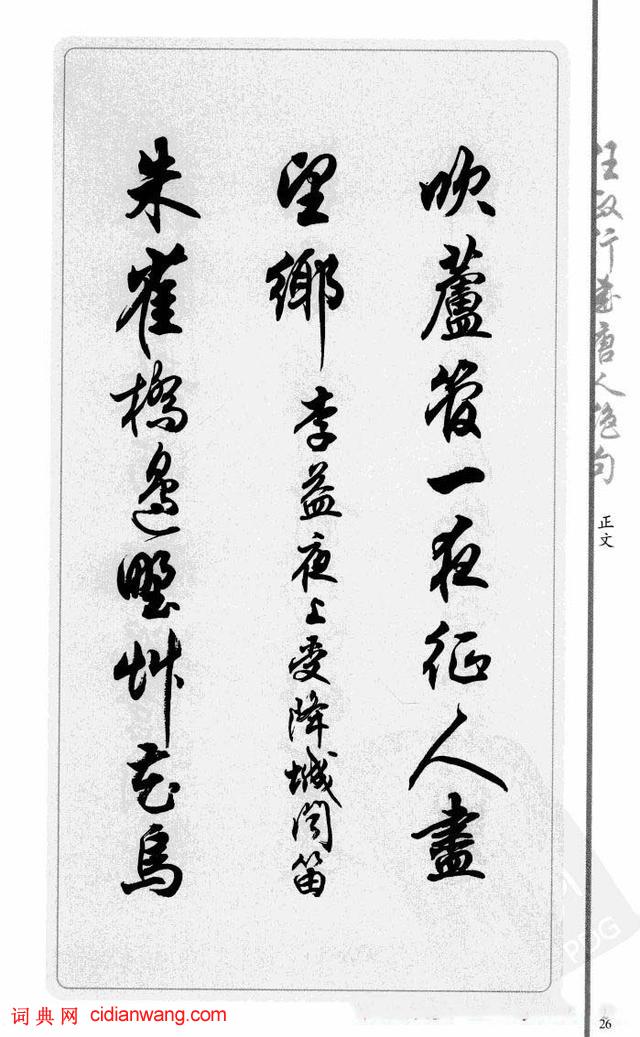 任政行書唐人絕句
正文
吹蘆管一夜征人盡
望鄉 李益夜上受降城聞笛
朱雀橋邊野艸花烏
词典网 cidianwang.com
PDG
26